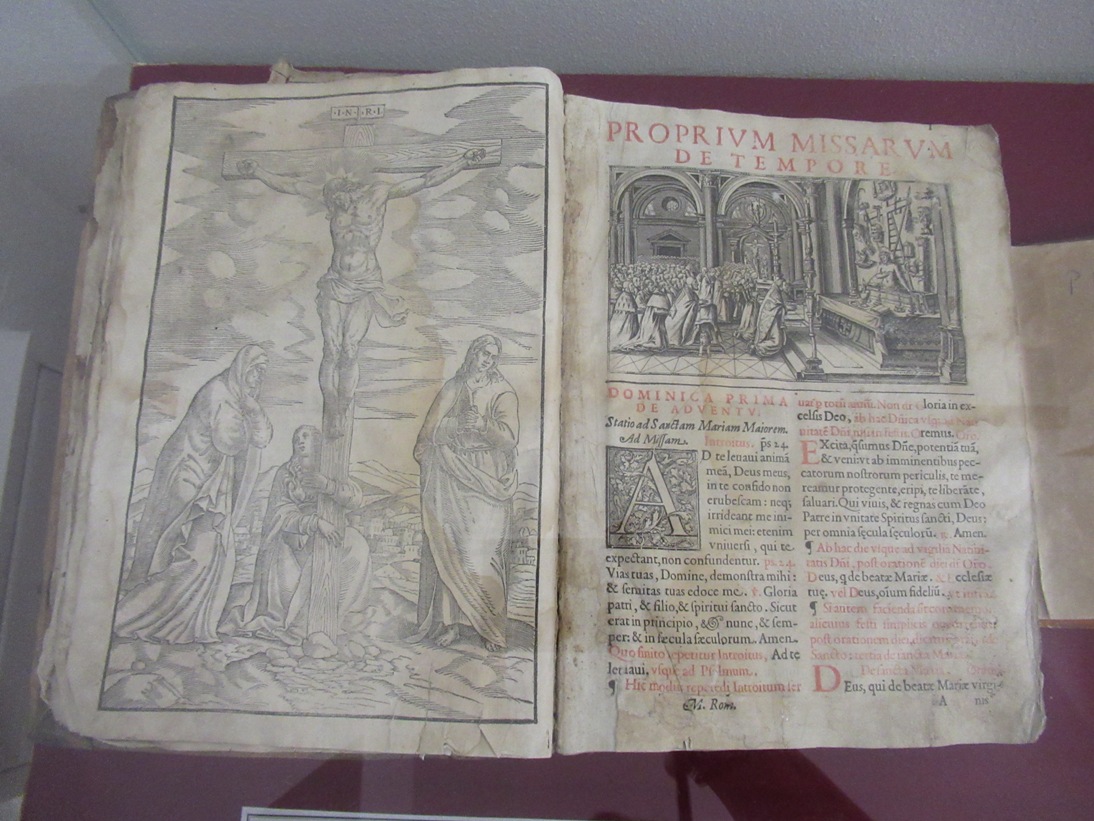 ·I·N·R·I·
PROPRIVM MISSARVM
DE TEMPORE
DOMINICA PRIMA
DE ADVENTV.
Statio ad Sanctam Mariam Maiorem.
Ad Missam. Introitus. ps 24.
AD te leuaui animã
meã, Deus meus,
in te confido non
erubescam: neq;
irrideant me ini-
mici mei: etenim
vniuersi, qui te
expectant, non confundentur. ps. 24.
Vias tuas, Domine, demonstra mihi:
& semitas tuas edoce me. ℣. Gloria
patri, & filio, & spiritui sancto. Sicut
erat in principio, & nunc, & sem-
per: & in secula sæculorum. Amen.
Quo finito repetitur Introitus, Ad te
leuaui, vsque ad Psalmum.
¶ Hic modus repetēdi Introitum ser
M. Rom.
Non dr Gloria in ex-
celsis Deo, ab hac Dñica
Oremus. Oro.
EXcita, q̃sumus Dñe, potentiã tuã,
& veni: vt ab imminentibus pec-
catorum nostrorum periculis, te me-
reamur protegente, eripi, te liberãte,
saluari. Qui viuis, & regnas cum Deo
Patre in vnitate Spiritus sancti, Deus:
per omnia sęcula sęculorũ. ℟. Amen.
¶ Ab hac die vsque ad vigiliã Natiui-
tatis Dñi, post orationẽ diei dr Oro.
Deus, q de beatæ Mariæ. & Ecclesiæ
tuę. vel Deus, oium fideliũ.
¶ Si autem facienda sit commemo
alicuius festi simplicis
post orationem diei
DEus, qui de beatæ Mariæ virgi-
A nis